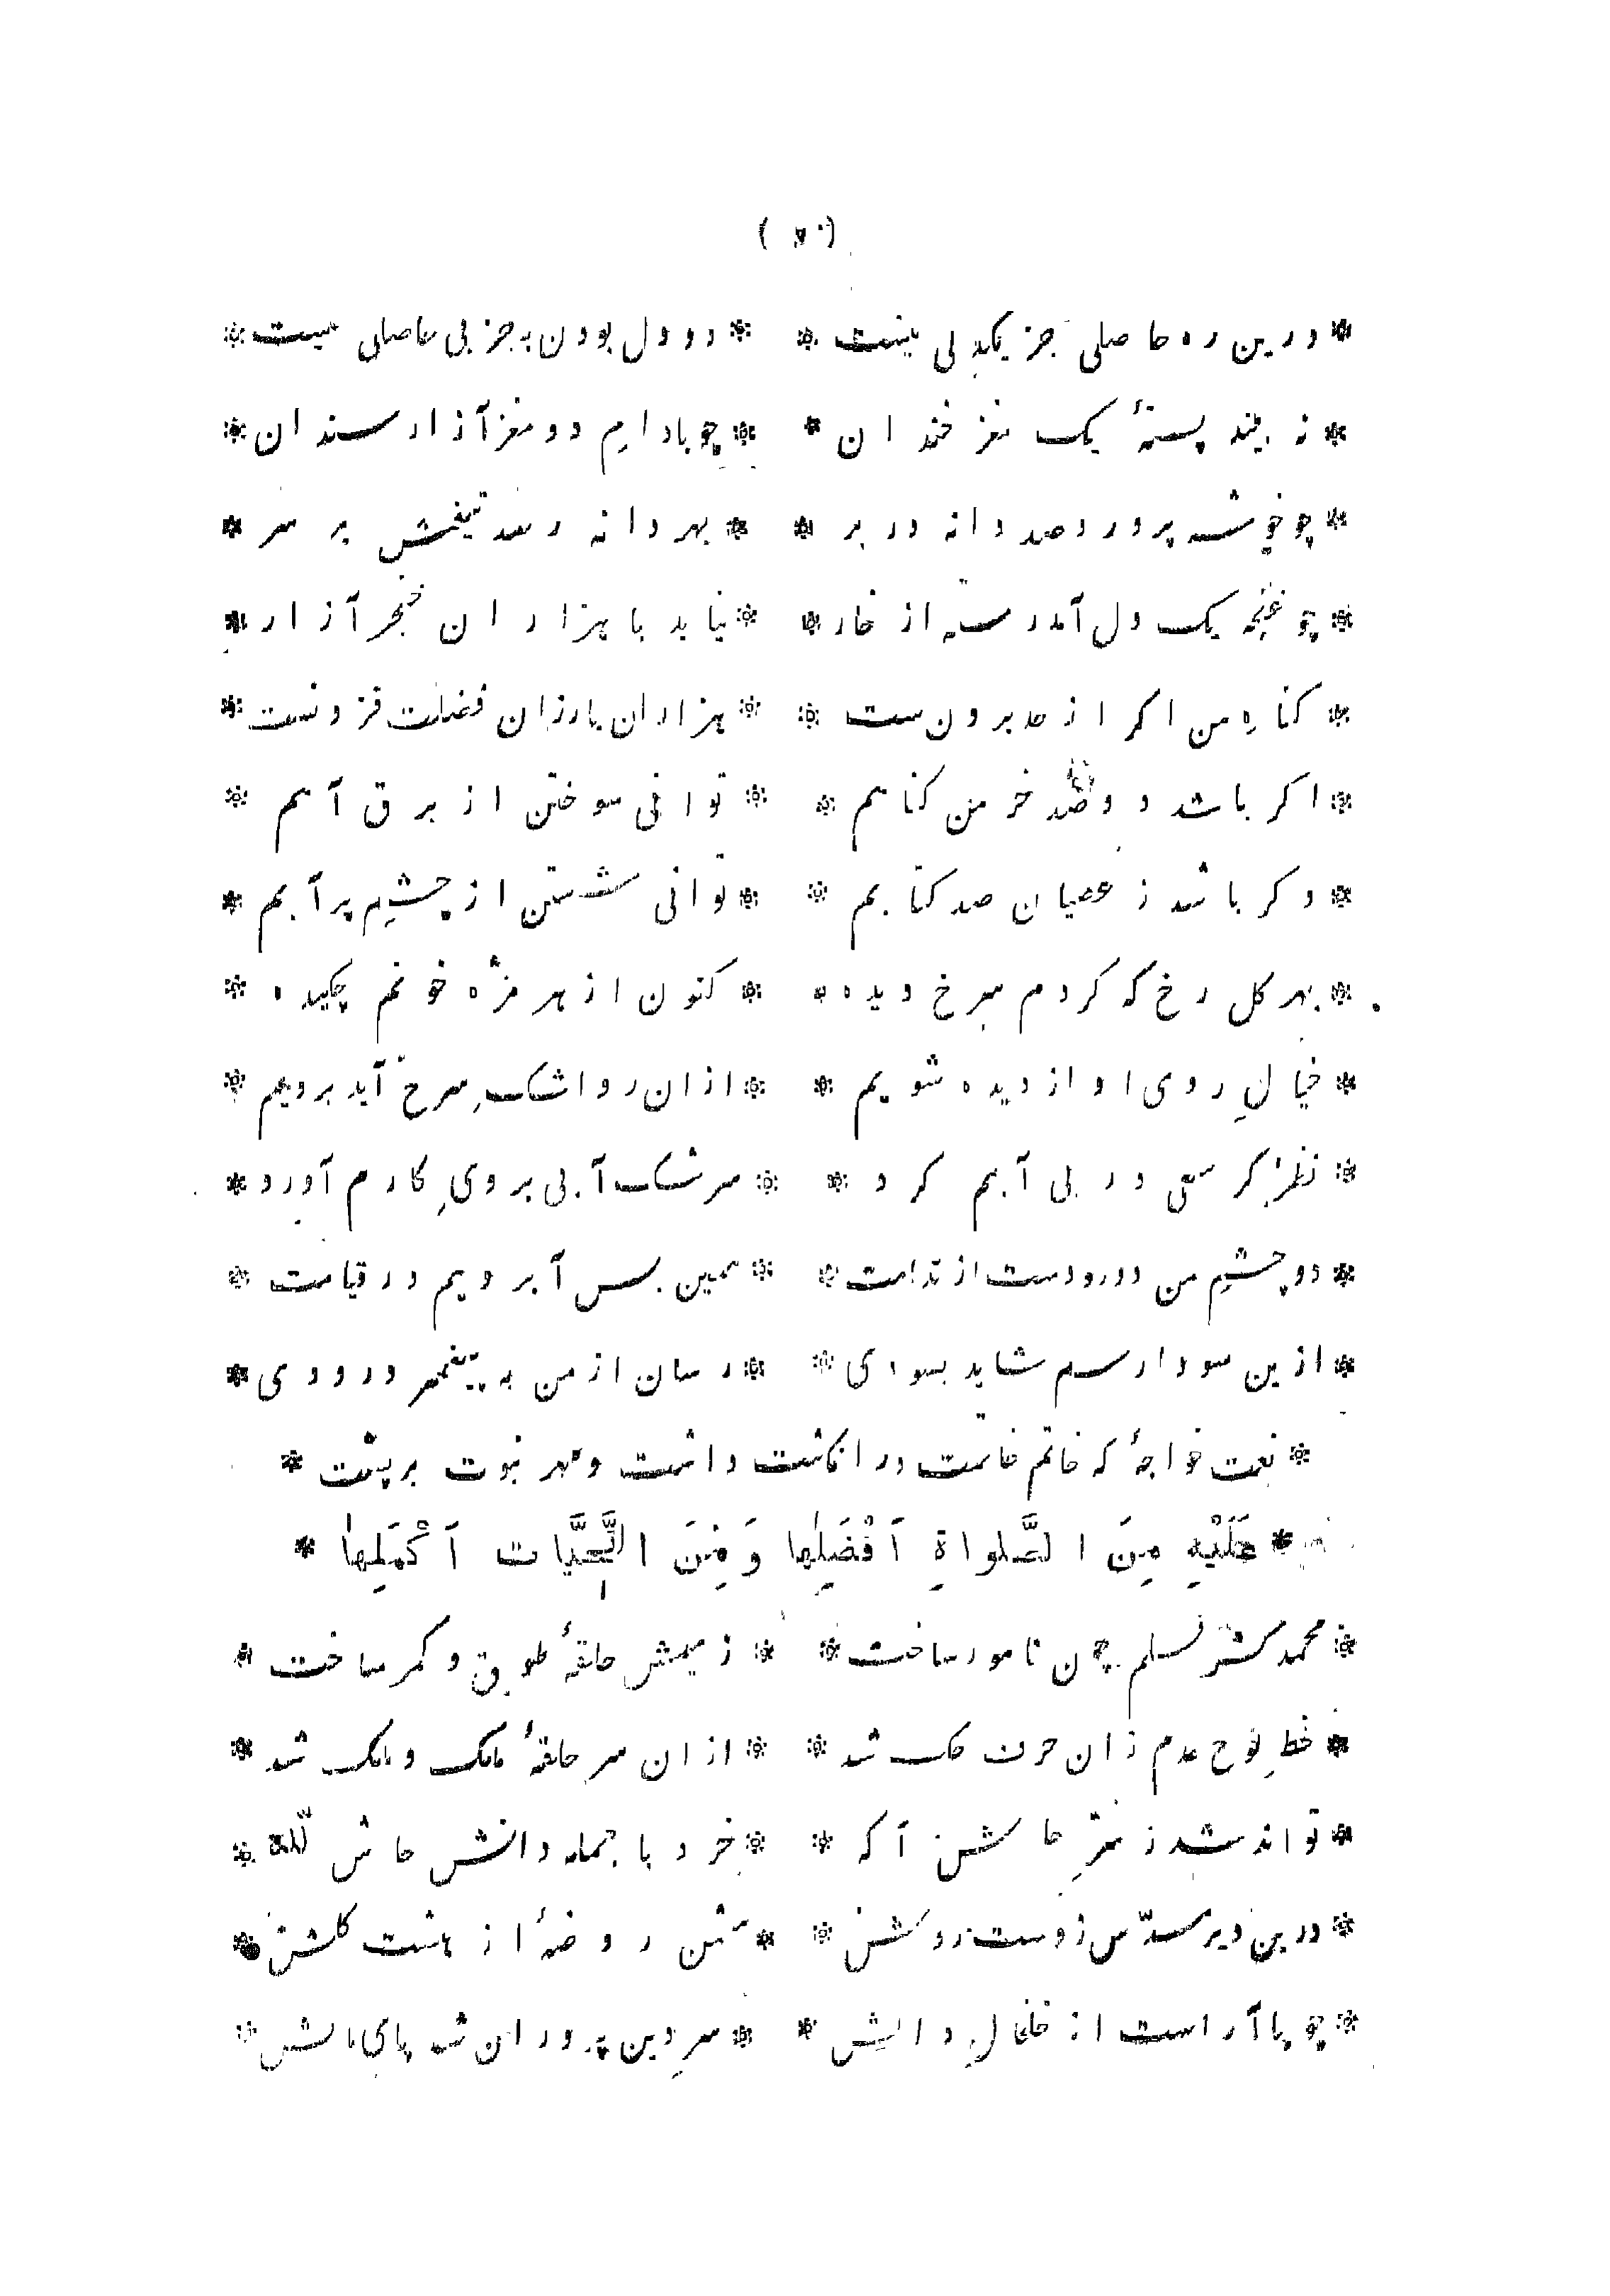 * درین ره حاصلی جز یکدلی نیست * * دو دل بودن بجز بی حاصلی نیست *
* نه بیند پستهٔ یک مغز خندان * * چو بادام دو مغز آزار سندان *
* چو خوشه پرورد صد دانه در بر * * بهر دانه رسد تیغش بر سر *
* چو غنچه یک دل آمد رسته از خار * * نیابد با هزاران خنجر آزار *
* کناه من اکر از حد برون ست * * هزاران بار زان فضلت فزونست *
* اکر باشد دو صد خرمن کناهم * * توانی سوختن از برق آهم *
* وکر باشد ز عصیان صد کتابم * * توانی شستن از چشمِ پر آبم *
* بهر کل رخ که کردم سرخ دیده * * کنون از هر مژه خونم چکیده *
* خیالِ روی او از دیده شویم * * ازان رو اشکِ سرخ آید برویم *
* نظر کر سعی در بی آبیم کرد * * سرشک آبی بروی کارم آورد *
* دو چشمِ من دو رودست از ندامت * * همین بس آبرویم در قیامت *
* ازین سودا رسم شاید بسودی * * رسان از من به پیغمبر درودی *
* نعت خواجهٔ که خاتم خاتمت در انکشت داشت و مهر نبوت بر پشت *
* عَلَیْهِ مِنَ الصَّلواةِ اَفْضَلِهٰا وَمِنَ التَّحِیَّات اَکْمَلِهٰا *
* محمد کش قلم چون نامور ساخت * * ز میمش حلقهٔ طوق و کمر ساخت *
* خطِ لوح عدم زان حرف حک شد * * ازان سر حلقهٔ ملک و ملک شد *
* تواند شد ز سرِ حاش آکه * * خرد با جمله دانش حاش لله *
* درین دیر مسدّس زوست روشن * * مثمن روضهٔ از هشت کلشن *
* چو پا آراست از خلخالِ دالش * * سرِ دین پروران شد پای مالش *